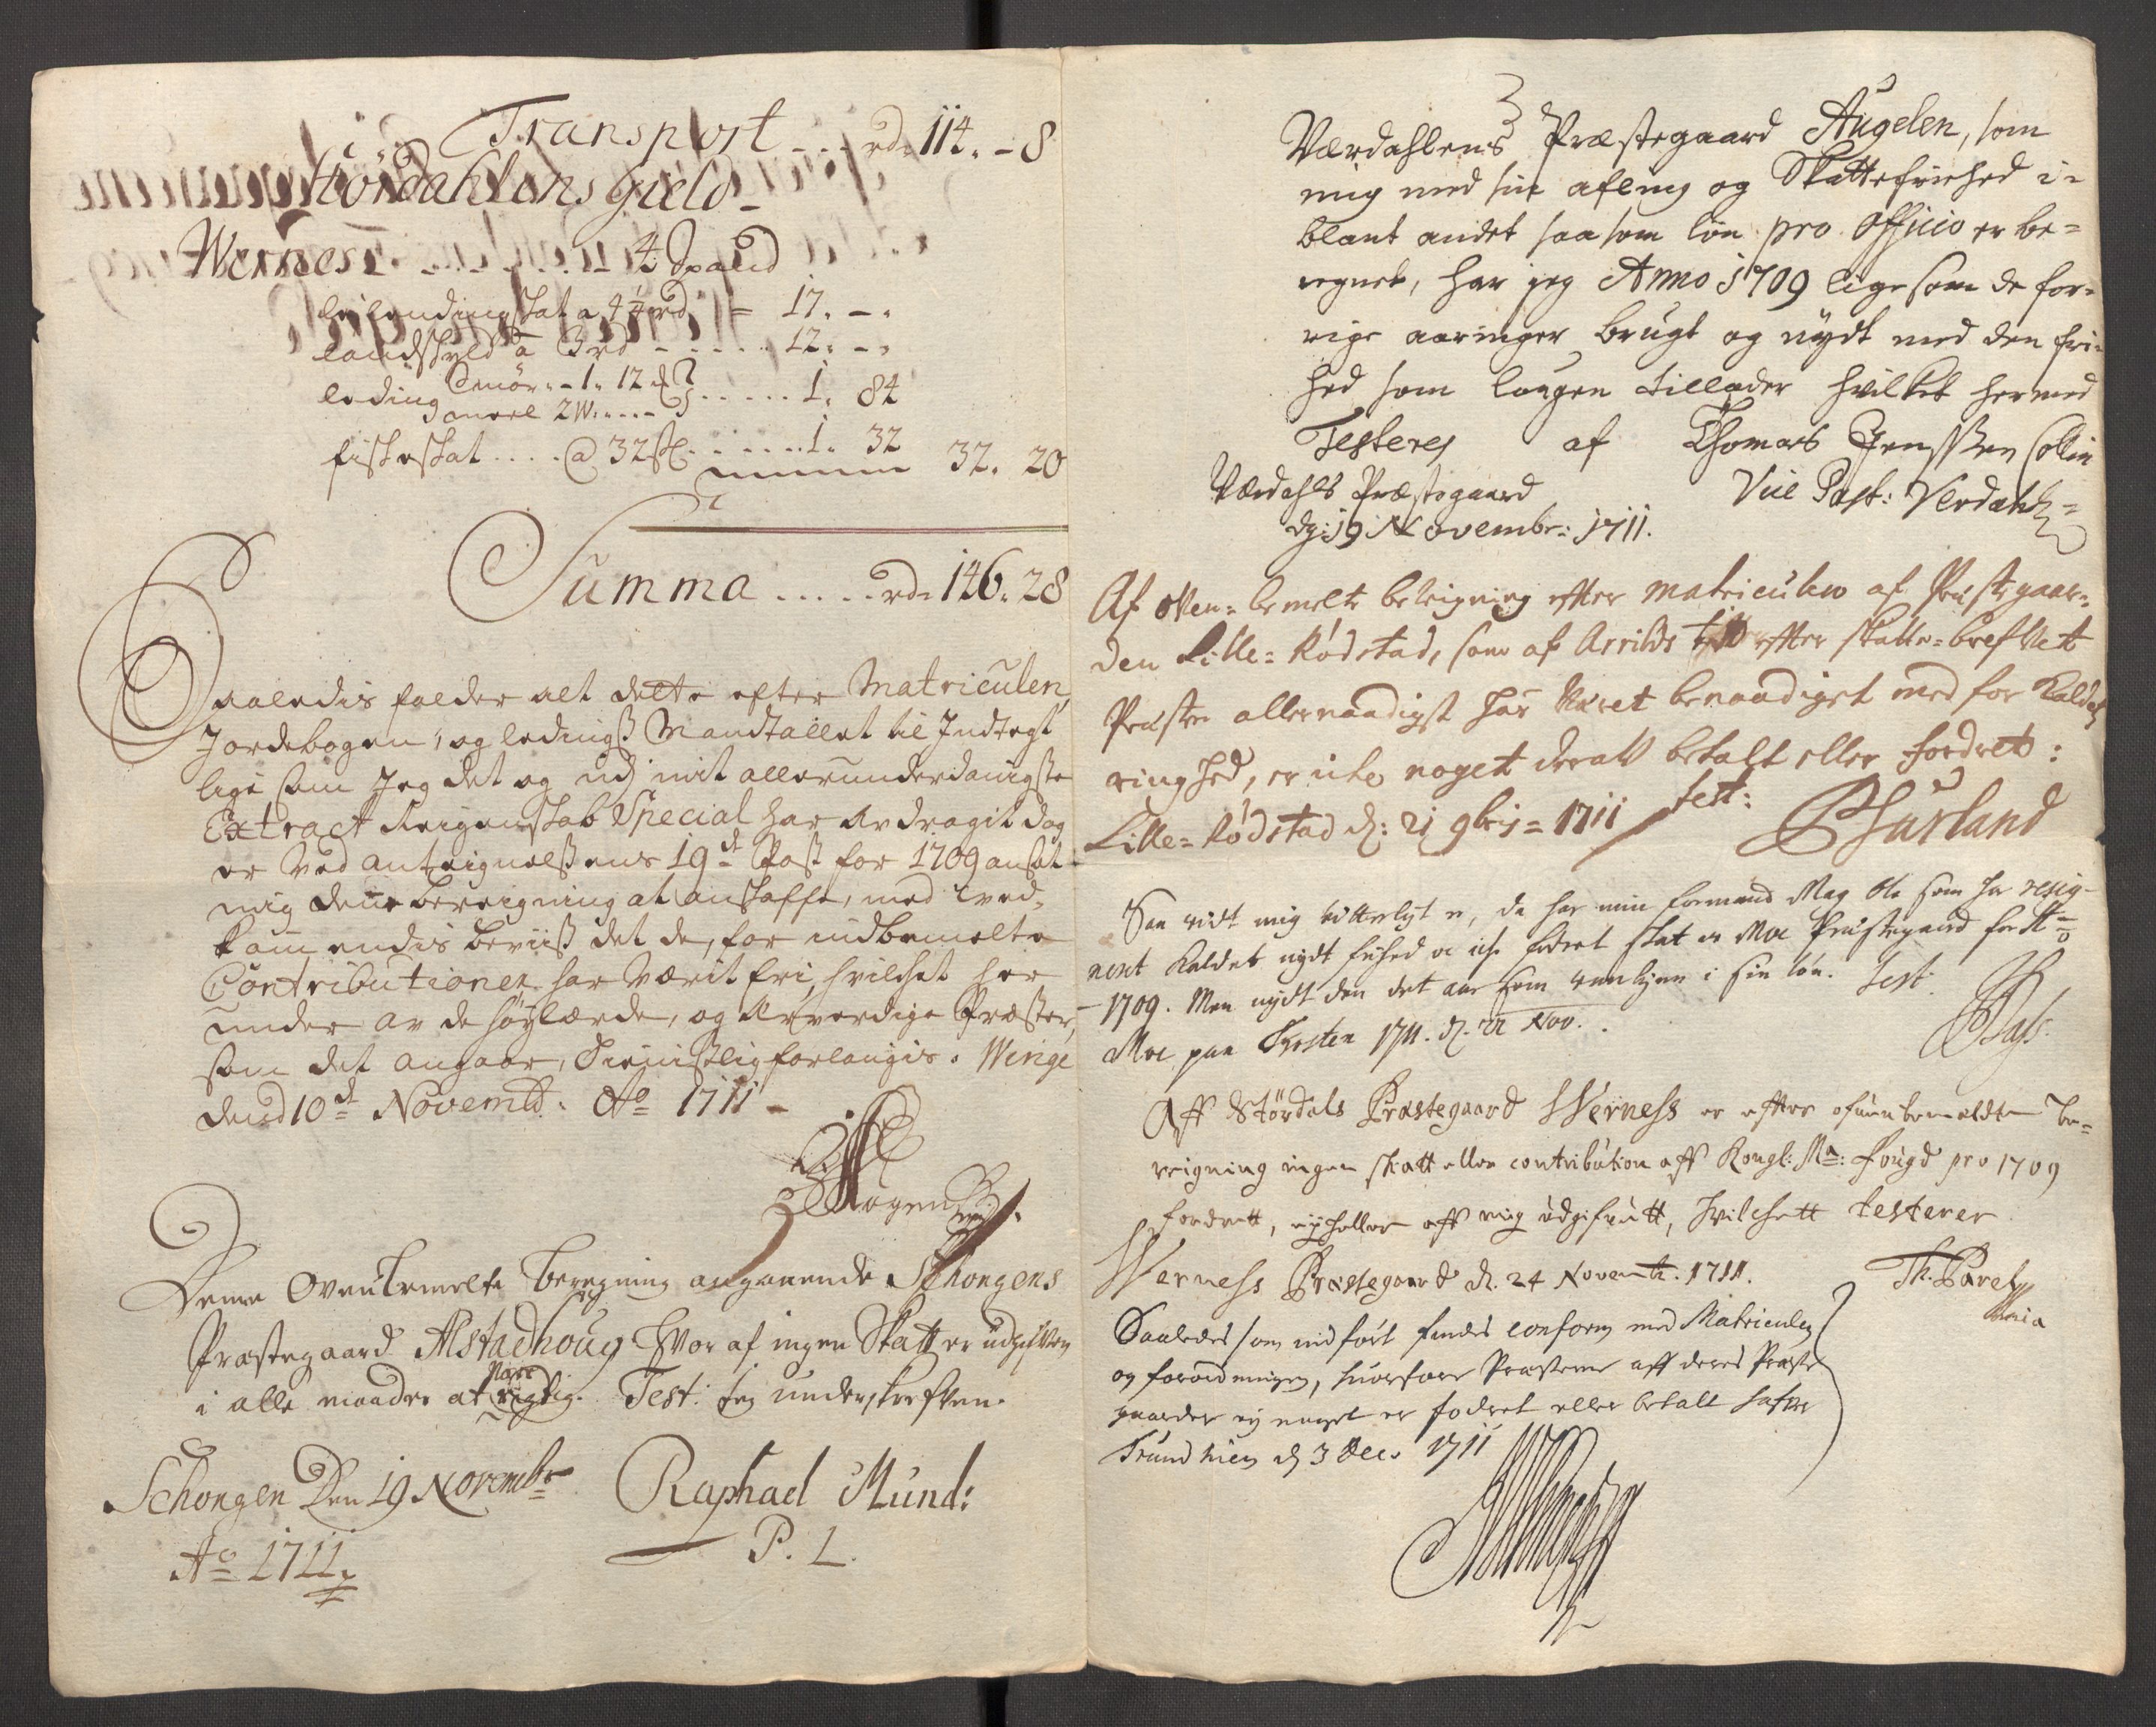 Transport - - - rd. 114. - 8
Størdahlens gield -
Wernes - - - - - 4 Spand
leilendingskat a 4 1/4 rd = 17. - .
landskyld a 3 rd - - - - - 12. - .
leding Smör. - 1. 12 . . . . . 1. 84
meel 2 W. - - -
fiskeskat . . . . @ 32 s . . . . . . . 1. 32 32. 20
Summa . . . . . rd. 146. 28
Saaledis falder alt dette efter Matriculen,
Jordebogen, og ledings Mandtallet til Indtegt
lige som Jeg det og udj mit allerunderdanigste
Extract Reigenskab Special har Andragit dog
er ved anteignelssens 19de Post for 1709 ansat
mig denne bereigning at anskaffe, med ved-
kommendis beviiss det de, for indbemelte
Contributioner har værit fri, hvilchet her
under av de höylærde, og Ærværdige Præster,
som det angaar, tienistlig forlangis. Werige
dend 10de Novembr. Ao 1711 -
Denne Ovenbemelte beregning angaaende Schongens
Præstegaard Alstadhoug hvor af ingen Skatt er udgifven
i alle maader at være rigtig. Test: Jeg underskrefven.
Schongen Den 19 Novembr.
Raphael Mund:
Ao 1711
P. L.
Værdahlens Præstegaard Augelen, som
mig med sin afling og Skattefriehed i-
blant andet saasom løn pro officio er be-
regnet, har jeg Anno 1709 lige som de for-
rige aaringer brugt og nydt med den fri-
hed som lougen tillader hvilket hermed
Testeres af Thomas Jenssen Collin
Værdahls Præstegaard
Vice Past: Verdahl
d: 19 Novembr: 1711.
Af oven-bemelte beleigning efter matriculen af Præstegaar-
den Lille-Rødstad, som af Arrilds tid efter skatte-brefvet
Præsten allernaadigst har været benaadiget med for Kaldets
ringhed, er icke noget deraf betalt eller fordret:
Lille-Rødstad d: 21 9bris = 1711 test:
Saa vidt mig vitterligt er, da har min formand Mag Ole som har resig-
neret Kaldet nydt frihed og icke fodret skat av Moe Præstegaard for Ao
1709. Men nydt den det aar som i sin løn. Test.
Moe paa Thosten 1711. d. 21 Nov.
Aff Størdals Præstegaard Werness er effter ofuenbemældte be-
reigning ingen skatt eller contribution aff Kongl: Ma: Fougd pro 1709
fordrett, ej heller aff mig udgifuett, hvilchett testerer
Werness Præstegaard d. 24 Novembr. 1711.
Saaledes som indført findes conform med Matriculen
og forordningen, huorfore Præsterne aff deres Præste
gaarder ej noget er fodret eller betalt
Trundhiem d 3 Dec. 1711